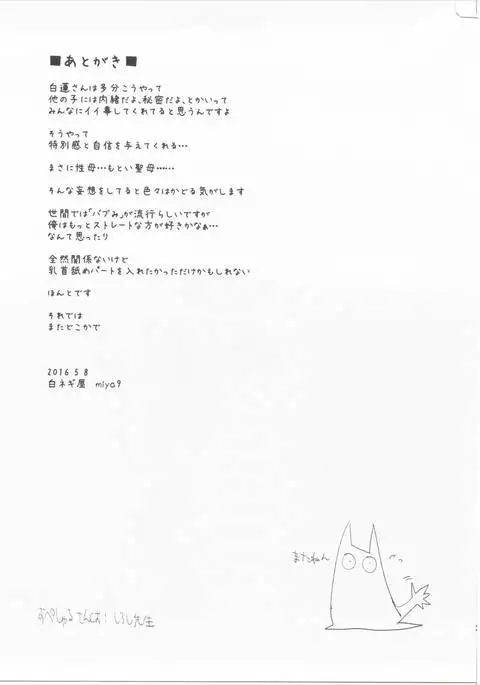 ■あとがき■
白蓮さんは多分こうやって
他の子には内緒だよ、秘密だよ、とかいって
みんなにイイ事してくれてると思うんですよ
そうやって
特別感と自信を与えてくれる…
まさに性母…もとい聖母……
そんな妄想をしてると色々はかどる気がします
世間では「バブみ」が流行らしいですが
俺はもっとストレートな方が好きかなぁ…
なんて思ったり
全然関係ないけど
乳首舐めパートを入れたかっただけかもしれない
ほんとです
それでは
またどこかで
2016 5 8
白ネギ屋 miya9
またねん
すぺしゃるさんくす:いろし先生